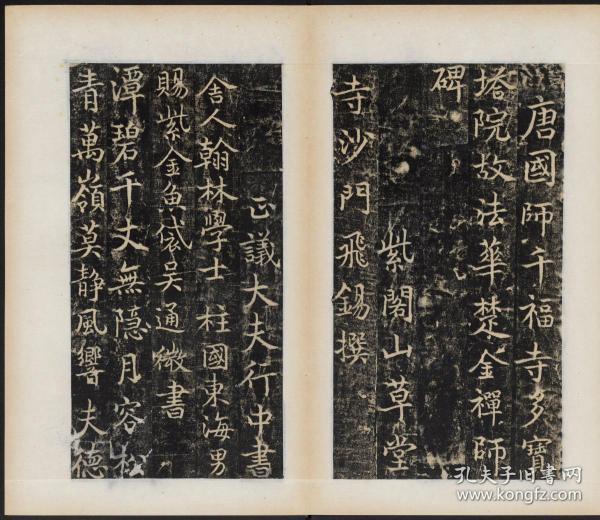 唐國師千福寺多寶
塔院故法華楚金禪師
碑
紫閣山草堂
寺沙門飛錫撰
正議大夫行中書
舍人翰林學士柱國東海男
賜紫金魚袋吳通微書
潭碧千丈無隐月容松
青萬嶺莫静風響夫德
孔夫子旧书网
www.kongfz.com